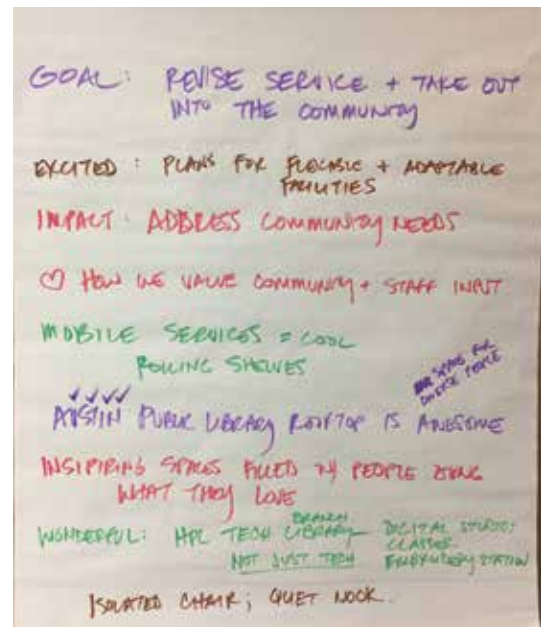 GOAL: REVISE SERVICE + TAKE OUT
INTO THE COMMUNITY
EXCITED: PLANS FOR FLEXIBLE + ADAPTABLE
FACILITIES
IMPACT: ADDRESS COMMUNITY NEEDS
♡ HOW WE VALUE COMMUNITY + STAFF INPUT
MOBILE SERVICES = COOL
ROLLING SHELVES
SPACE FOR
✓✓✓✓
AUSTIN PUBLIC LIBRARY ROOFTOP IS AWESOME
INSIPIRING SPACES FILLED W/ PEOPLE DOING
WHAT THEY LOVE
BRANCH
WONDERFUL: HPL TECH LIBRARY
NOT JUST TECH
DIGITAL STUDIO;
CLASSES
EMBROIDERY STATION
ISOLATED CHAIR; QUIET NOOK.